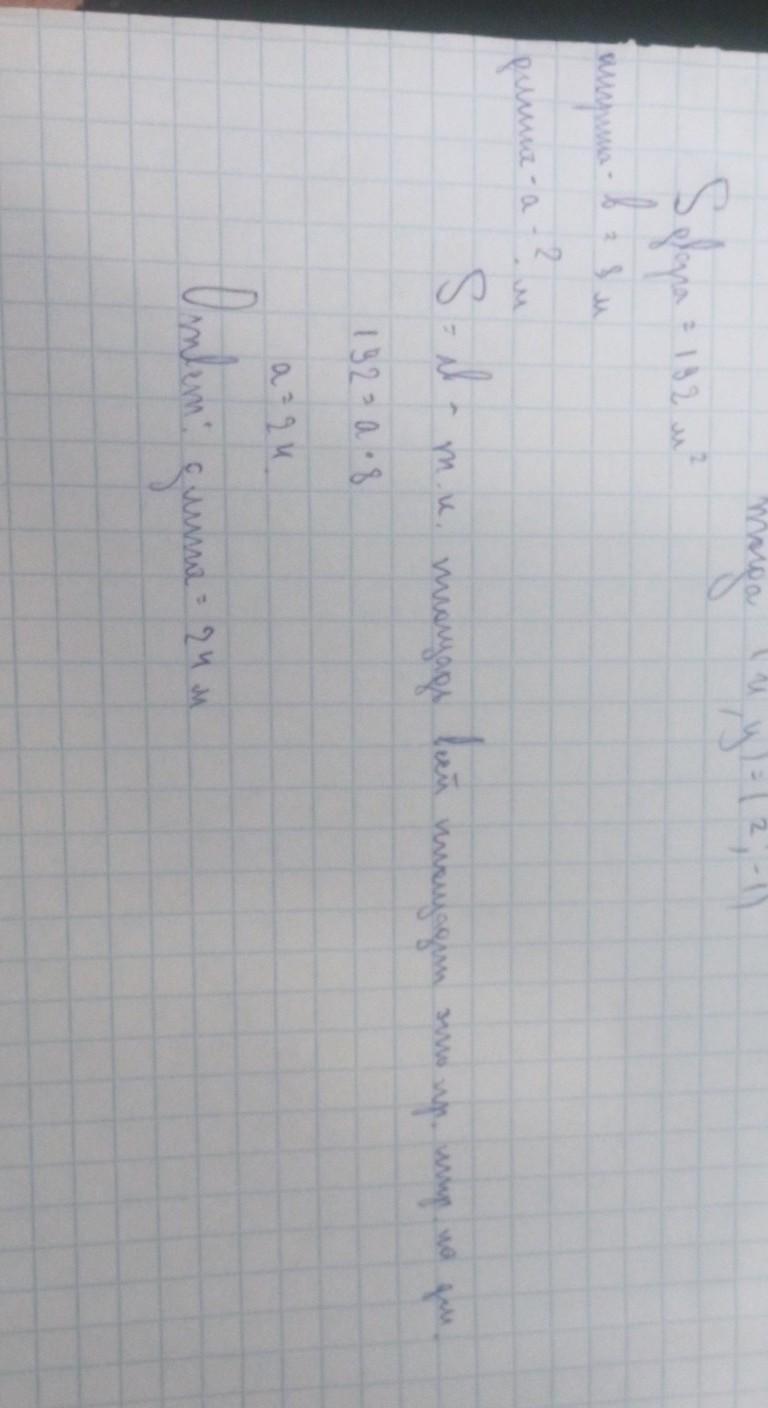 тогда (x, y) = (2; -1)
S двора = 192 м²
ширина - b = 8 м
длина - a - ? м
S = ab - т.к. площадь всей площадки это пр. шир на дл.
192 = a · 8
a = 24
Ответ: длина = 24 м